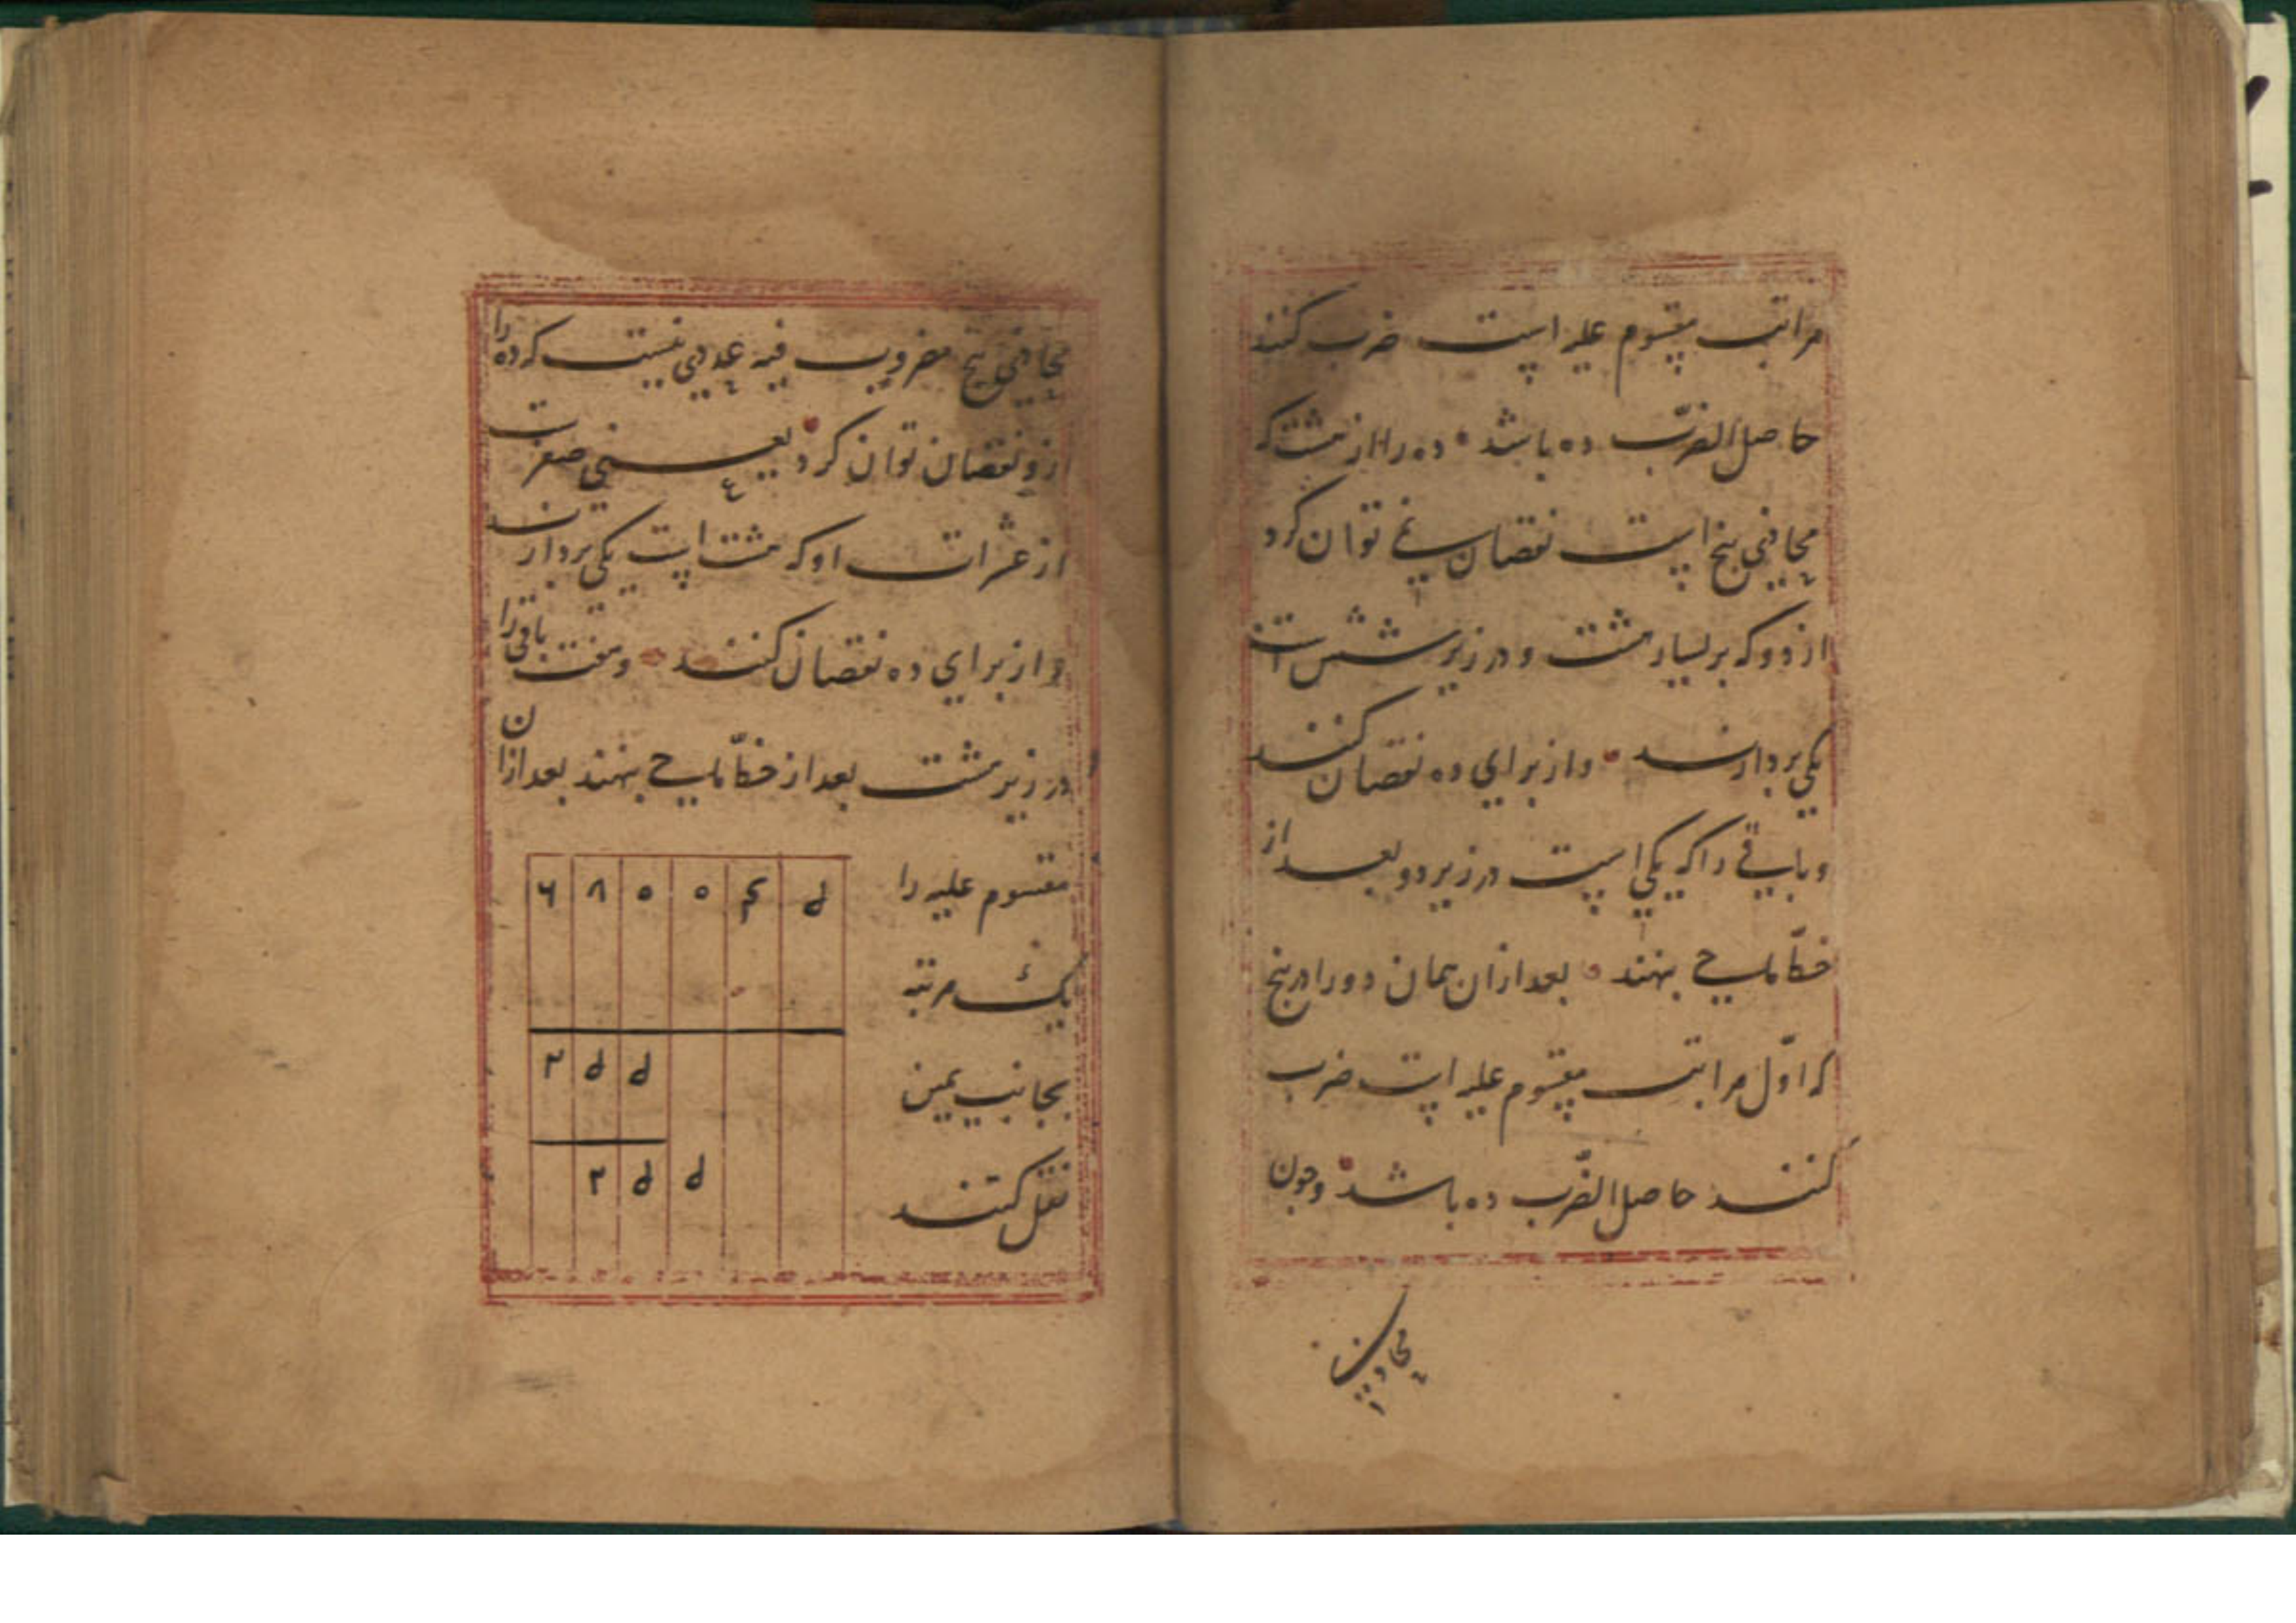 مراتب مقسوم علیه است ضرب کنند
حاصل الضرب ده باشد ده را از هشت که
محاذی پنج است نقصان نمی توان کرد
از دو که بر یسار هشت و در زیر شش است
یکی بردارند و از برای ده نقصان کنند
و باقی را که یکی است در زیر دو بعد از
خط ماحی بنهند بعد از ان همان دو را در پنج
که اول مراتب مقسوم علیه است ضرب
کنند حاصل الضرب ده باشد و چون
محاذی
محاذی پنج مضروب فیه عددی نیست که ده را
ازو نقصان توان کرد یعنی صفر است
از عشرات او که هشت است یکی بردارند
و از برای ده نقصان کنند و هفت باقی را
در زیر هشت بعد از خط ماحی بنهند بعد از ان
مقسوم علیه را
یک مرتبه
بجانب یمین
نقل کنند
۶ ۸ ۵ ۵ ۴ ط
۲ ط ط
۲ ط ط